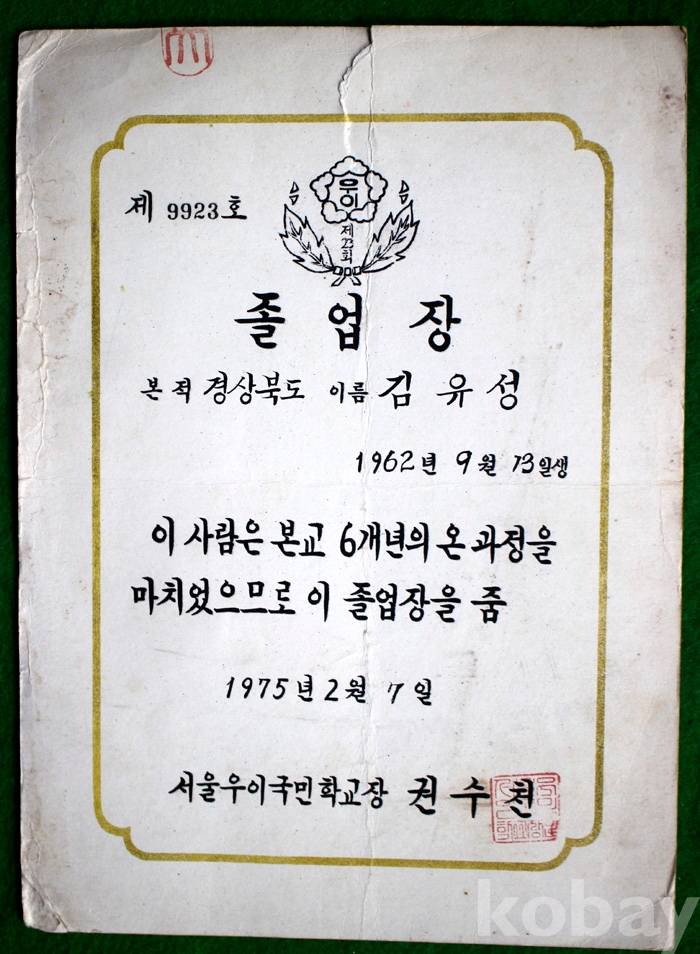 제 9923 호
우이
제
23
회
졸 업 장
본적 경상북도 이름 김 유 성
1962년 9월 13일생
이 사람은 본교 6개년의 온 과정을
마치었으므로 이 졸업장을 줌
1975년 2월 7일
서울우이국민학교장 권 수 천
kobay